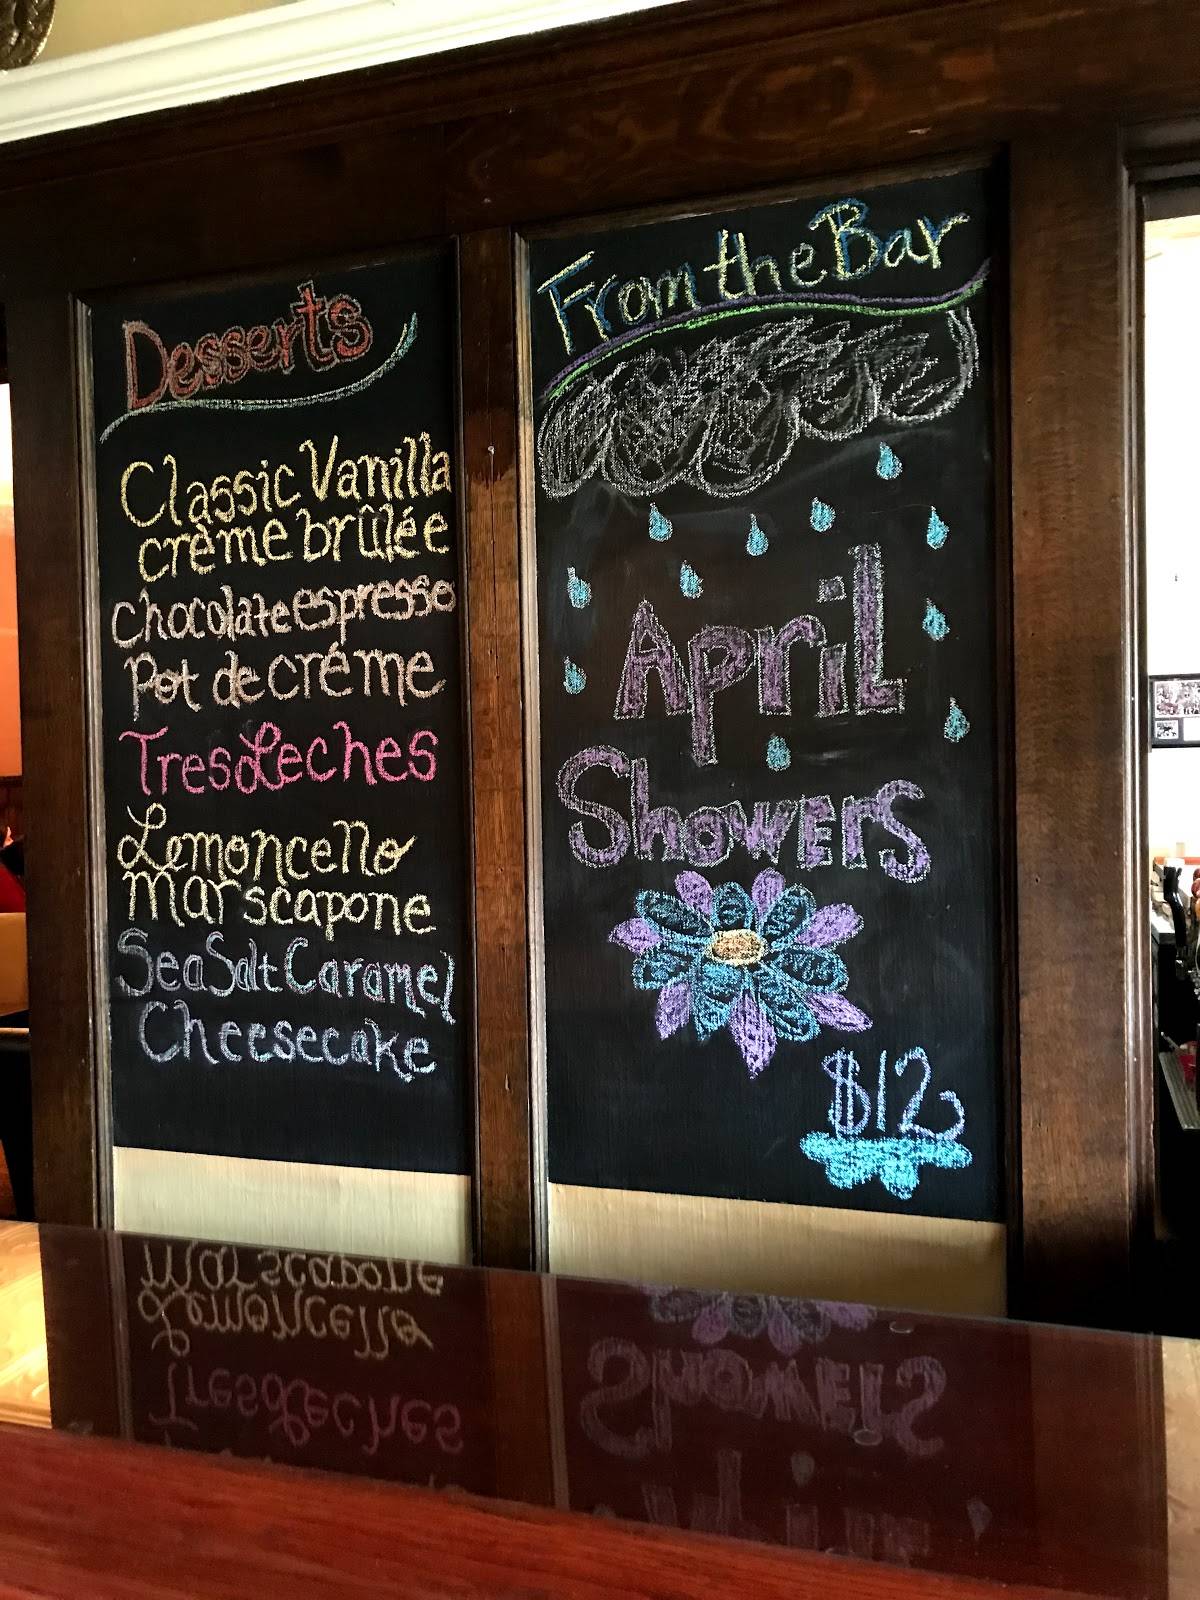 Desserts
Classic Vanilla
crème brûlée
chocolate espresso
Pot de créme
Tres Leches
Lemoncello
marscapone
Sea Salt Caramel
Cheesecake
From the Bar
April
Showers
$12